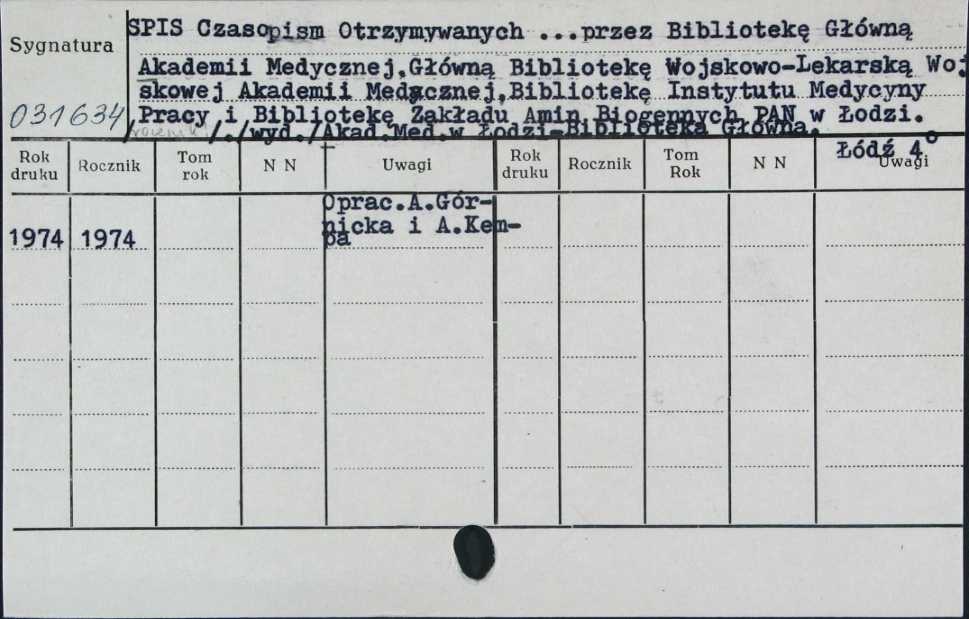 SPIS Czasopism Otrzymywanych ...przez Bibliotekę Główną
Sygnatura
Akademii Medycznej,Główną Bibliotekę Wojskowo-Lekarską Woj
skowej Akademii Medycznej,Bibliotekę Instytutu Medycyny
031634
Pracy i Bibliotekę Zakładu Amin Biogennych PAN w Łodzi.
/rocznik/./wyd./Akad.Med.w Łodzi-Biblioteka Główna.
Łódź 4°
Rok druku Rocznik Tom rok N N Uwagi Rok druku Rocznik Tom Rok N N Uwagi
Oprac.A.Gór-
nicka i A.Kem-
1974 1974 pa